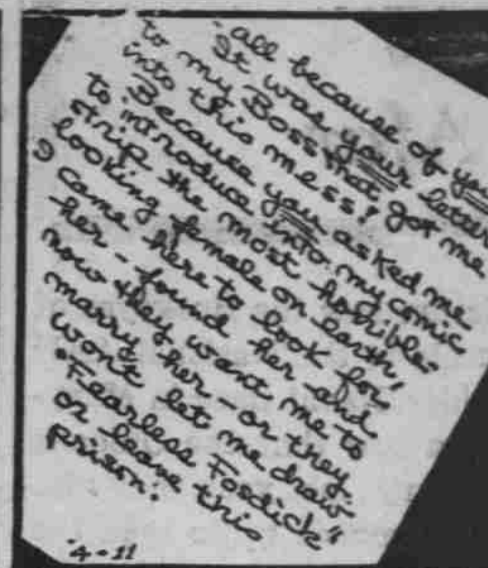 -all because of you
It was your letter
to my Boss that got me
into this mess!
Because you asked me
to introduce into my comic
strip the most horrible-
looking female on earth,
I came here to look for
her - found her - and
now they want me to
marry her - or they
won't let me draw
"Fearless Fosdick"
or leave this
prison.
4-11